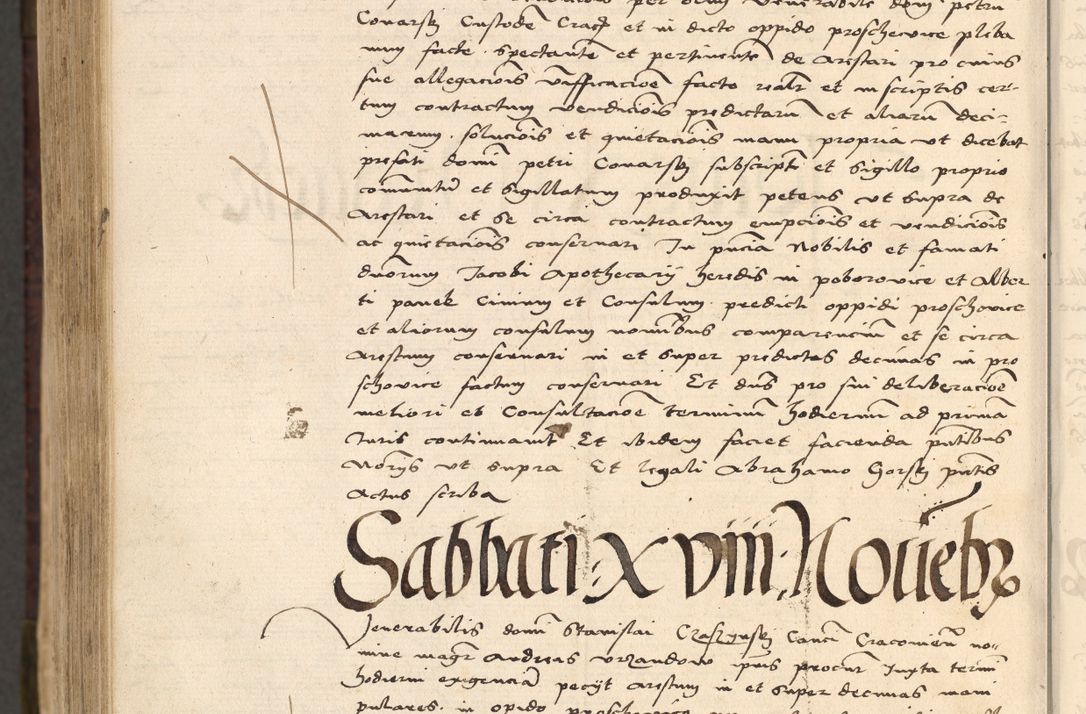 Conarsky Custodē Cracō et in dicto oppido proschovice pleba
num facte spectantē et pertinentē de Arestari pro cuius
sue allegaciois vīfficacioē facto realr et in scriptis cer-
tum contractum vendiciois predictarū et aliarū deci-
marum solucois et quietaciois manu propria ut dicebat
prefati domī petri Conarsky subscriptī et sigillo proprio
comūnitū et sigillatum produxit petens ut supra de
Arestari et se circa contractum empciois et vendiciois
ac quietaciois conservari In pñcia Nobilis et famati
duorum Jacobi Apothecarij heredis in poborovice et Alber
ti panek Civium et Consulum predicti oppidi proschovice
et aliorum consulum nomībus comparenciū et se circa
Arestum conservari in et super predictas decimas in pro
schovice factum conservari Et dns pro sui deliberacioē
meliori et Consultacioē terminū hodiernū ad primā
Juris continuavit Et ibidem faciet facienda pñtibus
Norijs ut supra Et legali Abrahamo Gorsky pñtis
Actus scriba
Sabbati: xviii: Novebr
Venerabilis domī Stanislai Crassynsky Canci Cracovieñ no-
mine magr Andreas urzandow ipius procur Juxta termī
hodierni exigenciā pecijt Arestum in et super decimas mani
pulares in opido